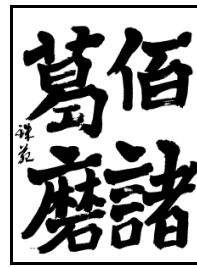 佰諸
葛磨
珠苑